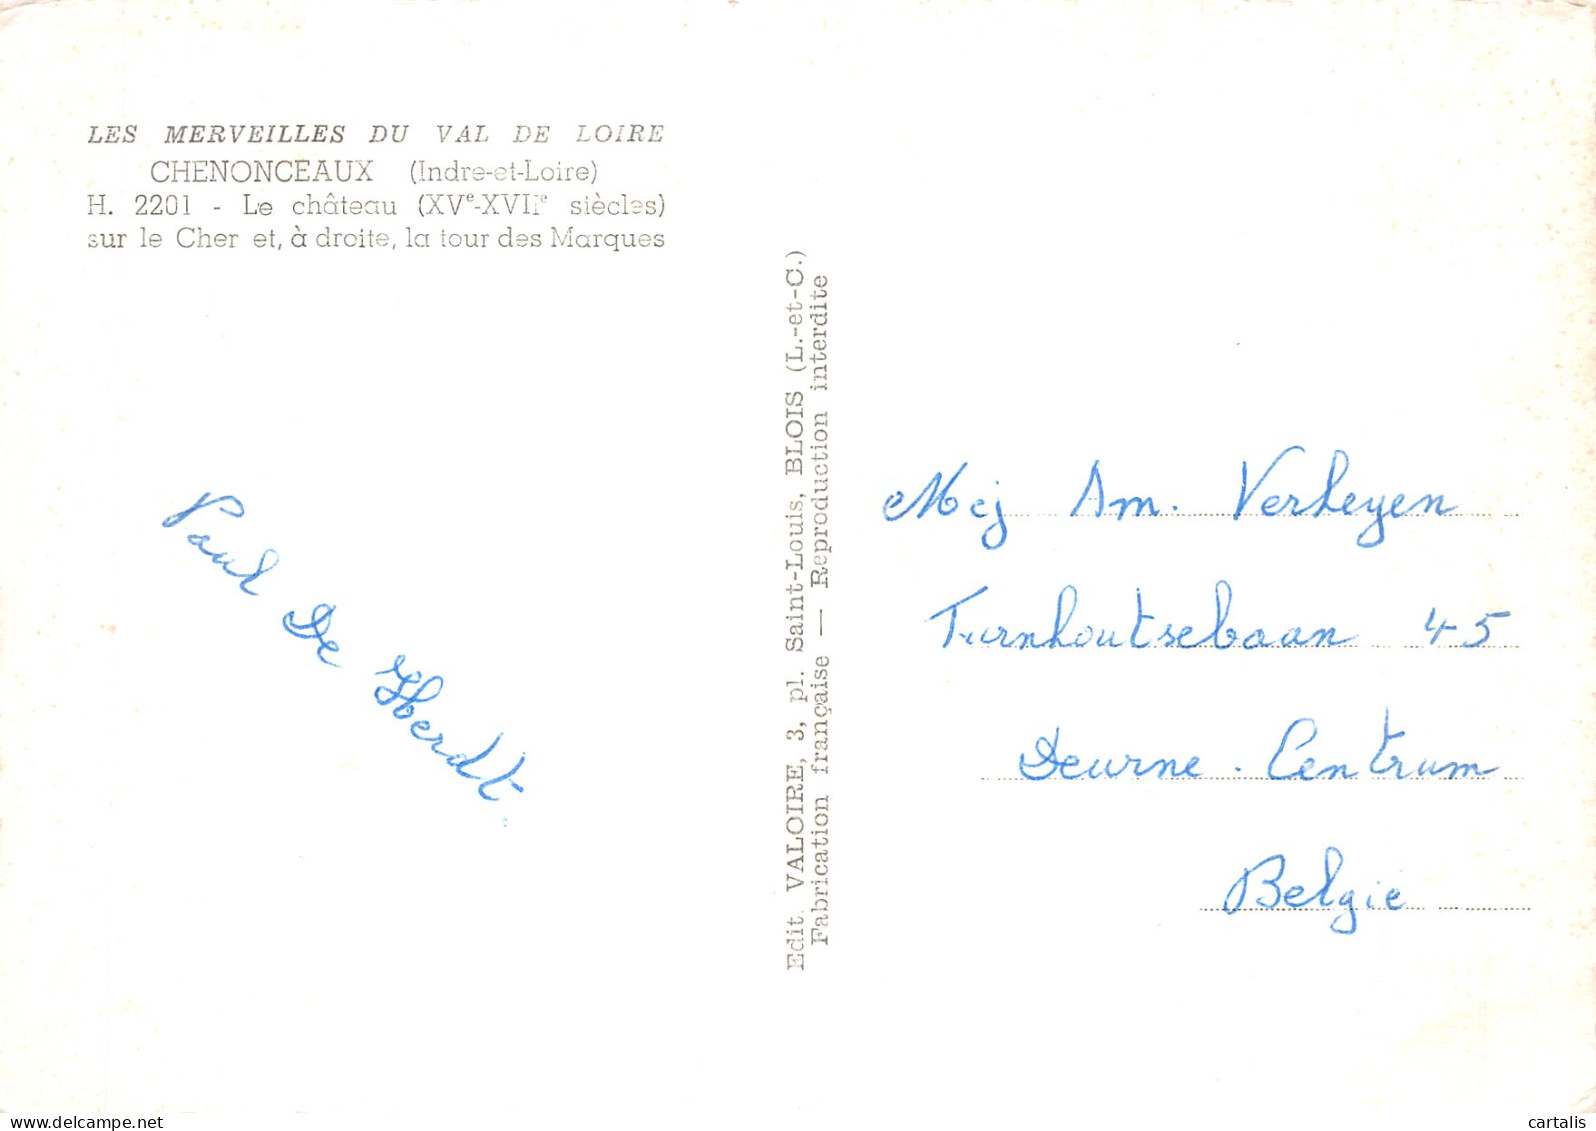 LES MERVEILLES DU VAL DE LOIRE
CHENONCEAUX (Indre-et-Loire)
H. 2201 - Le château (XVe-XVIIe siècles)
sur le Cher et, à droite, la tour des Marques
Paul De
Edit. VALOIRE, 3, pl. Saint-Louis, BLOIS (L.-et-C.)
Fabrication française — Reproduction interdite
Mej Am. Verheyen
Turnhoutsebaan 45
Deurne - Centrum
België
www.delcampe.net
cartalis